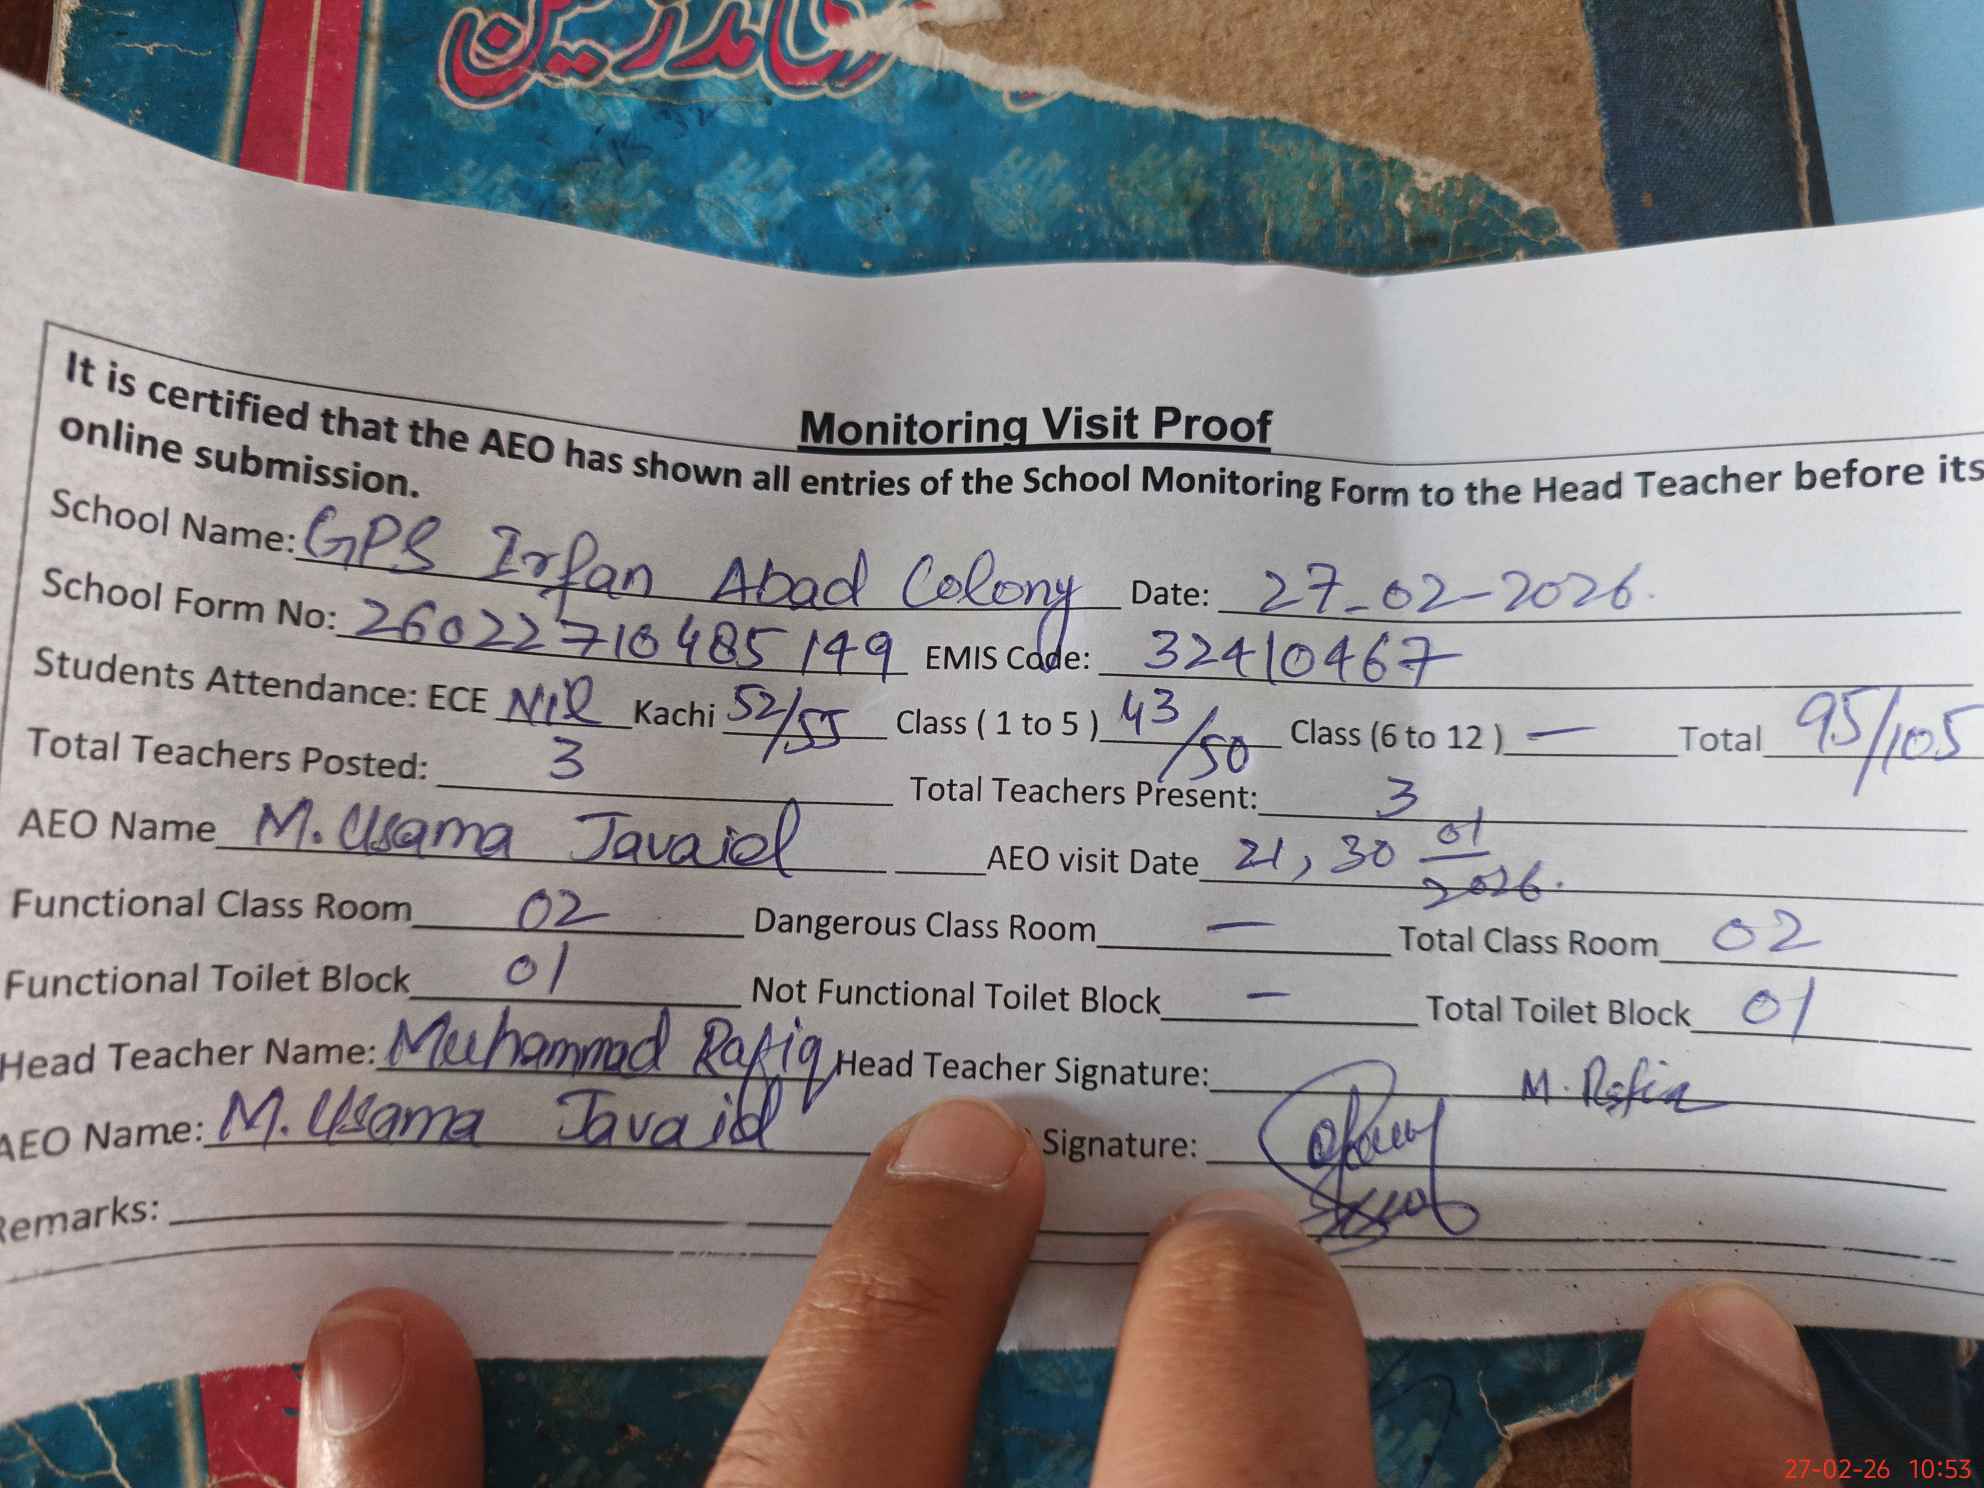 مدرسین
Monitoring Visit Proof
It is certified that the AEO has shown all entries of the School Monitoring Form to the Head Teacher before its
online submission.
School Name: GPS Irfan Abad Colony Date: 27-02-2026.
School Form No: 26022710485149 EMIS Code: 32410467
Students Attendance: ECE Nil Kachi 52/55 Class ( 1 to 5 ) 43/50 Class (6 to 12 ) — Total 95/105
Total Teachers Posted: 3 Total Teachers Present: 3
AEO Name M. Usama Javaid AEO visit Date 21, 30 01/2026.
Functional Class Room 02 Dangerous Class Room — Total Class Room 02
Functional Toilet Block 01 Not Functional Toilet Block — Total Toilet Block 01
Head Teacher Name: Muhammad Rafiq Head Teacher Signature: M. Rafiq
AEO Name: M. Usama Javaid Signature:
Remarks:
27-02-26 10:53